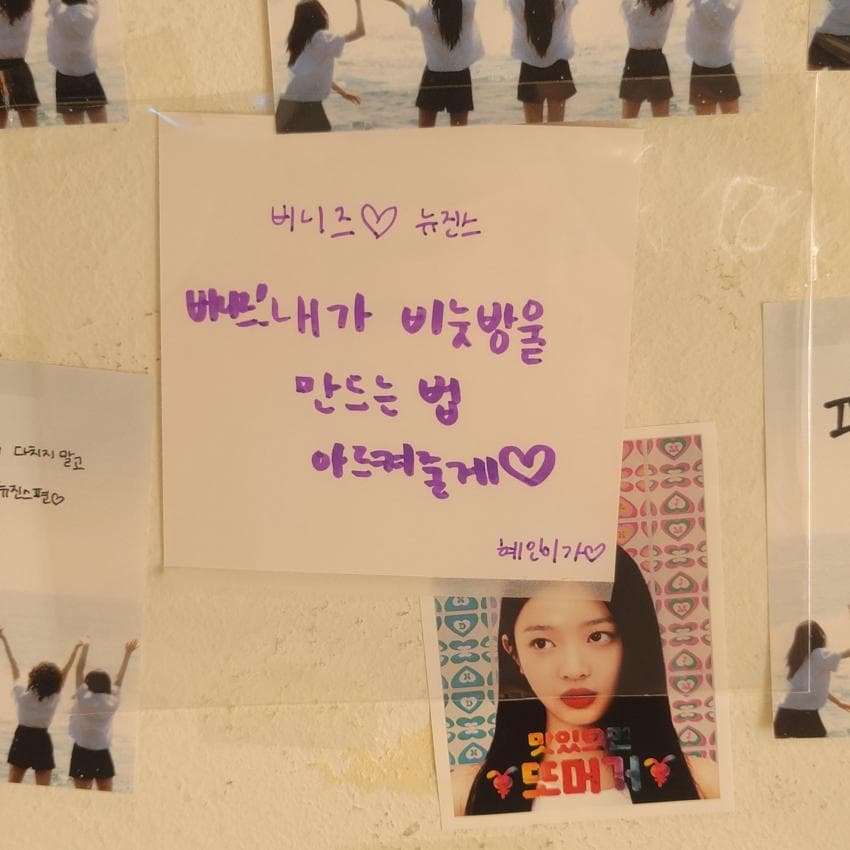 버니즈♡ 뉴진스
버니즈! 내가 비눗방울
만드는 법
아르켜줄게♡
혜인이가♡
다치지 말고
뉴진스편♡
맛있으면
또머거